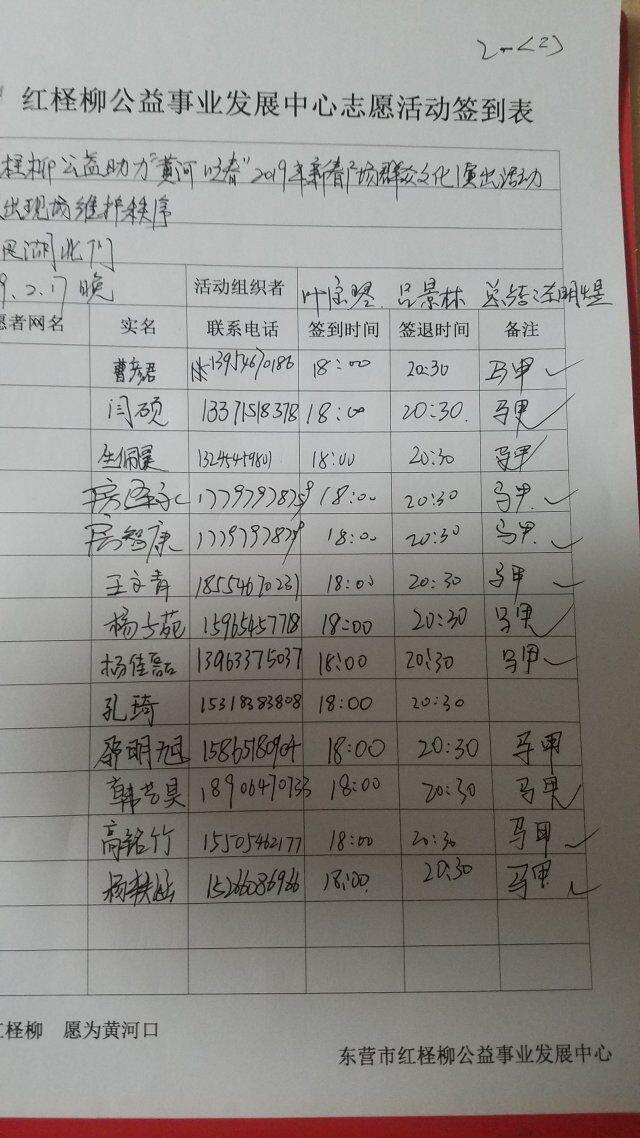 红柽柳公益事业发展中心志愿活动签到表
柽柳公益助力"黄河口春"2019年新春广场群众文化演出活动
出现场维护秩序
湖北门
9.2.17晚 活动组织者 吕景林
愿者网名 实名 联系电话 签到时间 签退时间 备注
曹彦君 13954670186 18:00 20:30 马甲 ✓
闫硕 13371518378 18:00 20:30. 马甲 ✓
18:00 20:30 马甲
18:00 20:30 马甲. ✓
房智康 18:00 20:30 马甲. ✓
王文青 18554670231 18:00 20:30 马甲 ✓
杨子苑 15965457718 18:00 20:30 马甲
杨佳磊 13963375037 18:00 20:30 马甲 ✓
孔琦 15318383808 18:00 20:30
邵明旭 15865180904 18:00 20:30 马甲
韩艺昊 18906470733 18:00 20:30 马甲
高铭竹 15505462177 18:00 20:30 马甲 ✓
杨轶涵 15266086966 18:00. 20:30 马甲. ✓
红柽柳 愿为黄河口
东营市红柽柳公益事业发展中心